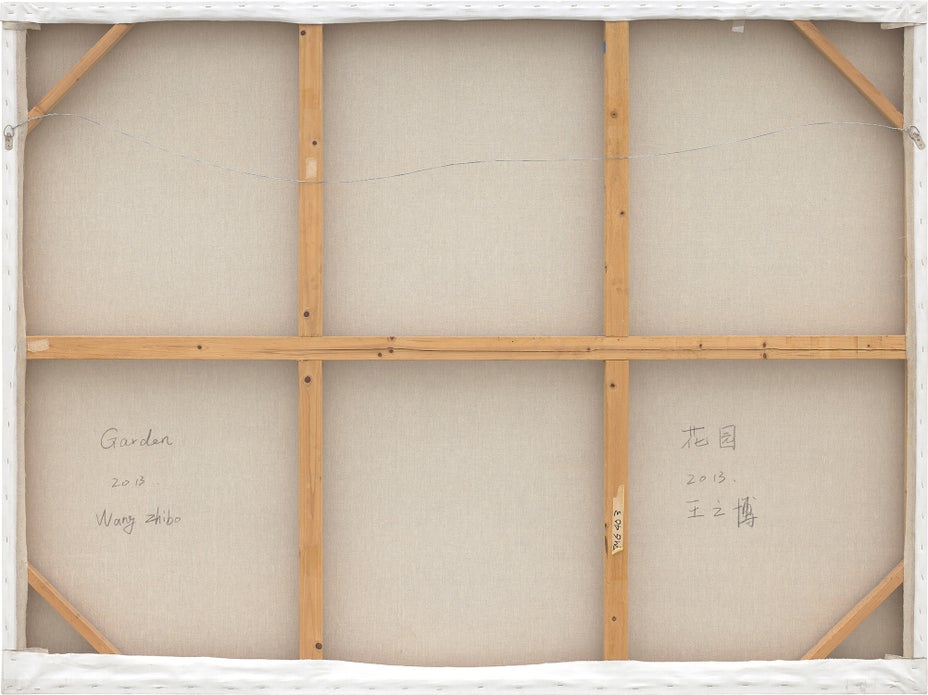 Garden
2013.
Wang Zhibo
花园
2013.
王之博